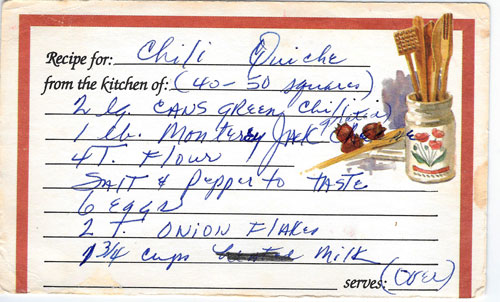 Recipe for: Chili Quiche
from the kitchen of: (40-50 squares)
2 lg. CANS GREEN Chili
1 lb. Monterey JACK Cheese
4 T. Flour
SAlT & Pepper to TASTE
6 eggs
2 T. ONION FlAKes
1 3/4 cups milk
serves: (over)